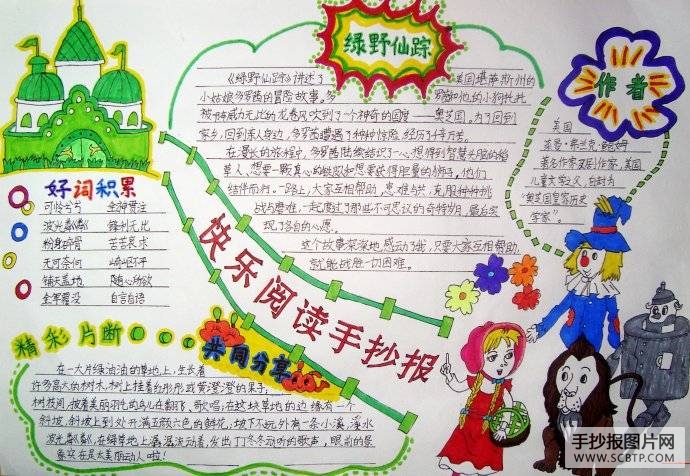 绿野仙踪
《绿野仙踪》讲述了
美国堪萨斯州的
小姑娘多罗茜的冒险故事。多罗茜和他的小狗托托
被一阵威力无比的龙卷风吹到了一个神奇的国度——奥芝国。为了回到
家乡,回到亲人身边,多罗茜遭遇了种种惊险,经历了千辛万苦。
在漫长的旅程中,多罗茜陆续结识了一心想得到智慧头脑的稻
草人、想要一颗真心的铁皮人和想要获得胆量的狮子。他们
结伴而行。一路上,大家互相帮助,患难与共,克服种种挑
战与磨难,一起度过了那些不可思议的奇特岁月,最后实
现了各自的心愿。
这个故事深深地感动了我,只要大家互相帮助,
就能战胜一切困难。
作者
美国
莱曼·弗兰克·鲍姆
著名作家兼剧作家,美国
儿童文学之父,自封为
“奥芝国皇家历史
学家”。
好词积累
可怜兮兮 全神贯注
波光粼粼 锋利无比
粉身碎骨 苦苦哀求
无可奈何 崎岖不平
铺天盖地 随心所欲
全军覆没 自言自语
快乐阅读手抄报
精彩片断
共同分享
在一大片绿油油的草地上,生长着
许多高大的树木,树上挂着红彤彤或黄澄澄的果子;
树枝间,披着美丽羽毛的鸟儿在翻飞、歌唱;在这块草地的边缘有一个
斜坡,斜坡上到处开满五颜六色的鲜花,坡下不远外有一条小溪,溪水
波光粼粼,在绿草地上潺潺流动着,发出丁冬冬动听的歌声,眼前的景
象实在是太美丽动人啦!
手抄报图片网
WWW.SCBTP.COM